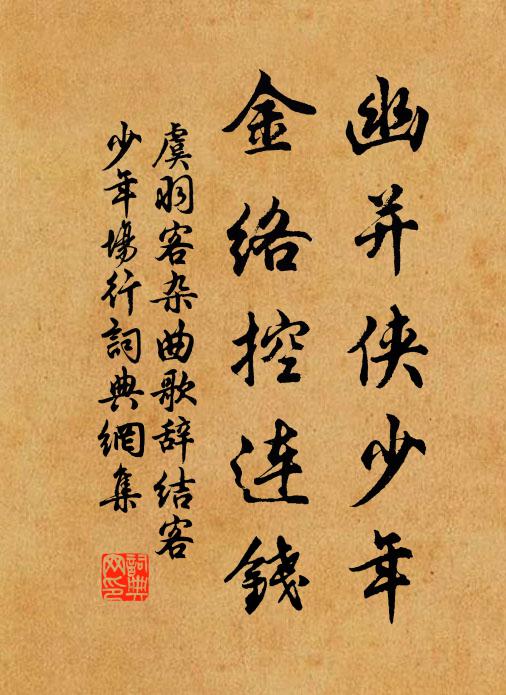 幽并侠少年
金络控连錢
虞羽客杂曲歌辞结客
少年場行詞典網集
詞典网印